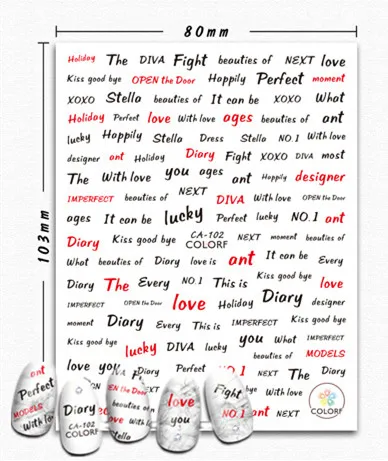 80mm
103mm
Holiday The DIVA Fight beauties of NEXT love
Kiss good bye OPEN the Door Happily Perfect moment
XOXO Stella beauties of It can be XOXO What
Holiday Perfect love With love ages beauties of ant
lucky Happily Stella Dress Stella NO.1 With love
designer ant Holiday Diary Fight XOXO DIVA most
The With love you ages ant Happily designer
IMPERFECT beauties of NEXT DIVA With love OPEN the Door
ages It can be lucky Perfect lucky NO.1 ant
Diary Kiss good bye CA-102 COLORF NEXT moment beauties of
What beauties of Diary love is ant It can be Every
Diary The Every NO.1 This is Kiss good bye love
IMPERFECT OPEN the Door love Holiday Diary designer
moment Diary Every This is IMPERFECT Kiss good bye
Kiss good bye lucky DIVA lucky you What IMPERFECT
beauties of MODELS
love you Diary NO.1 NEXT The Diary
Kiss good bye With love
NO.1 ant NEXT COLORF
ant
Perfect
MODELS
With lo
Diary
CA-102
COLORF
EN the Door
beauties of
With love
Stella
love
you
Fight